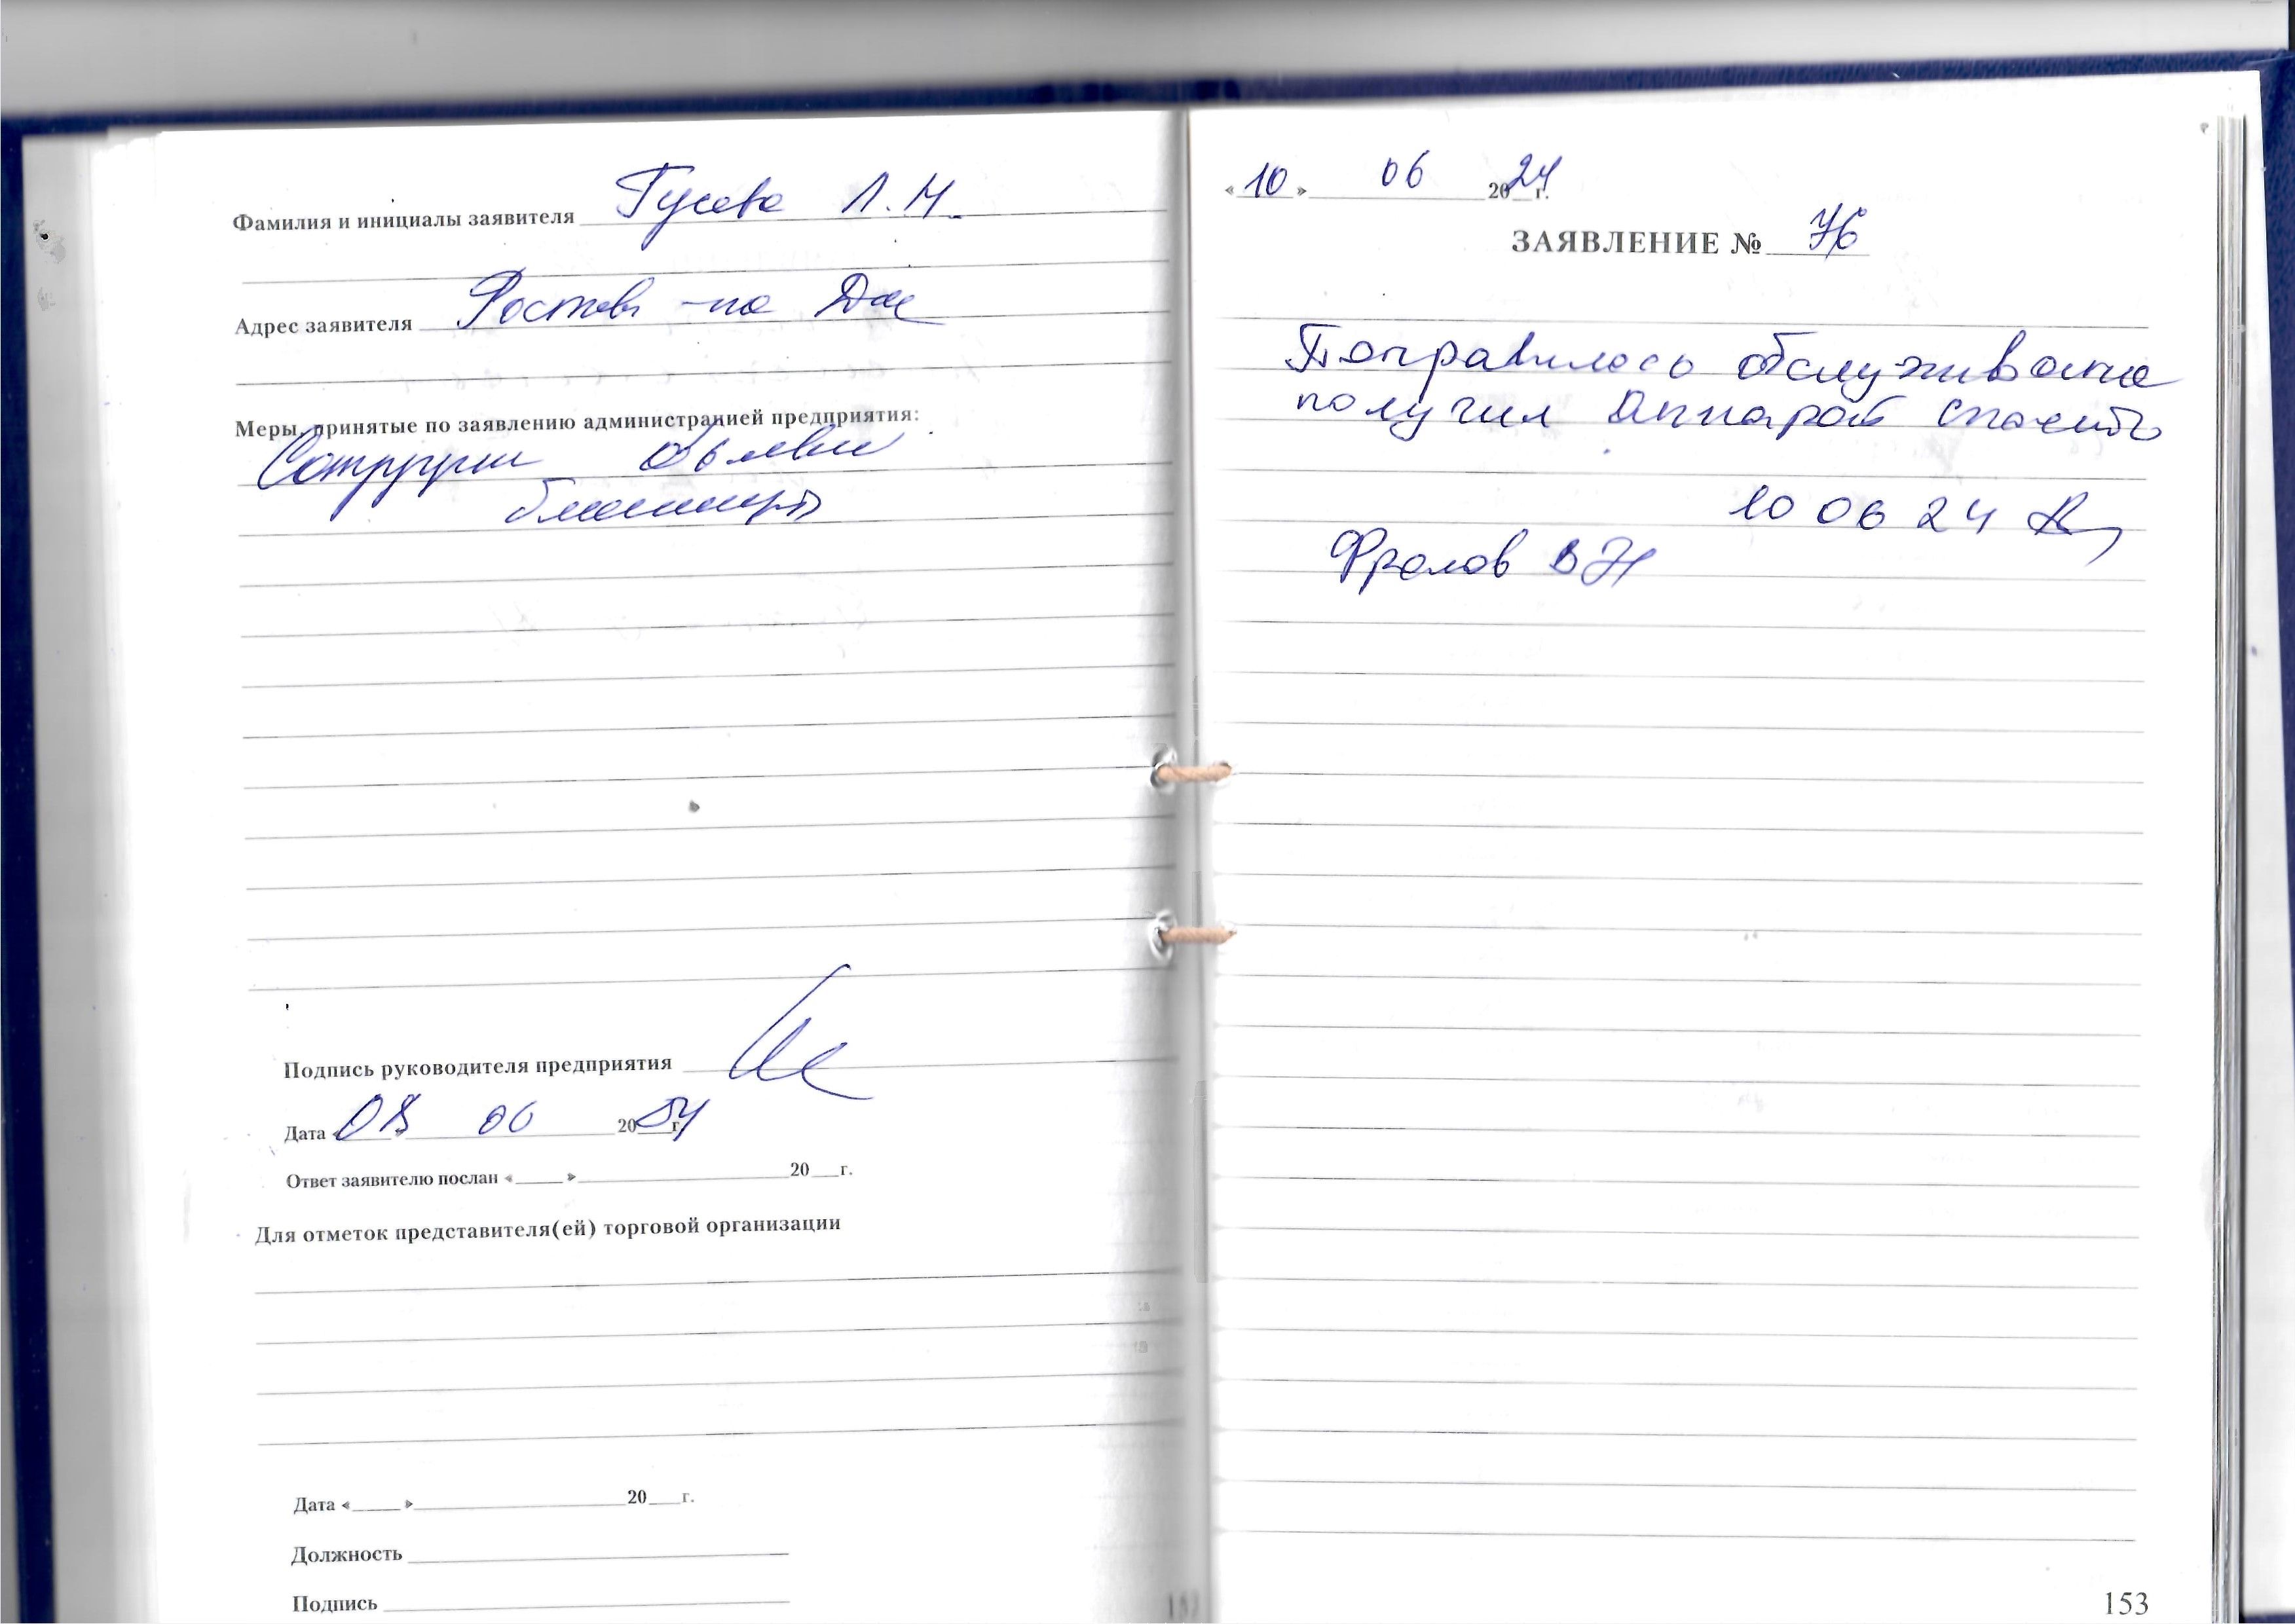 Фамилия и инициалы заявителя Гусева Л.Н.
Адрес заявителя Ростов-на Дон
Меры, принятые по заявлению администрацией предприятия:
Сотрудни объявле
благодар
Подпись руководителя предприятия
Дата « 08 » 06 2024 г.
Ответ заявителю послан «____» ____ 20__г.
Для отметок представителя(ей) торговой организации
Дата «____» ____ 20__г.
Должность
Подпись
« 10 » 06 2024 г.
ЗАЯВЛЕНИЕ № 76
Понравилось обслуживание
получил Аппарат спасибо
10 06 24
Фролов В Н
153